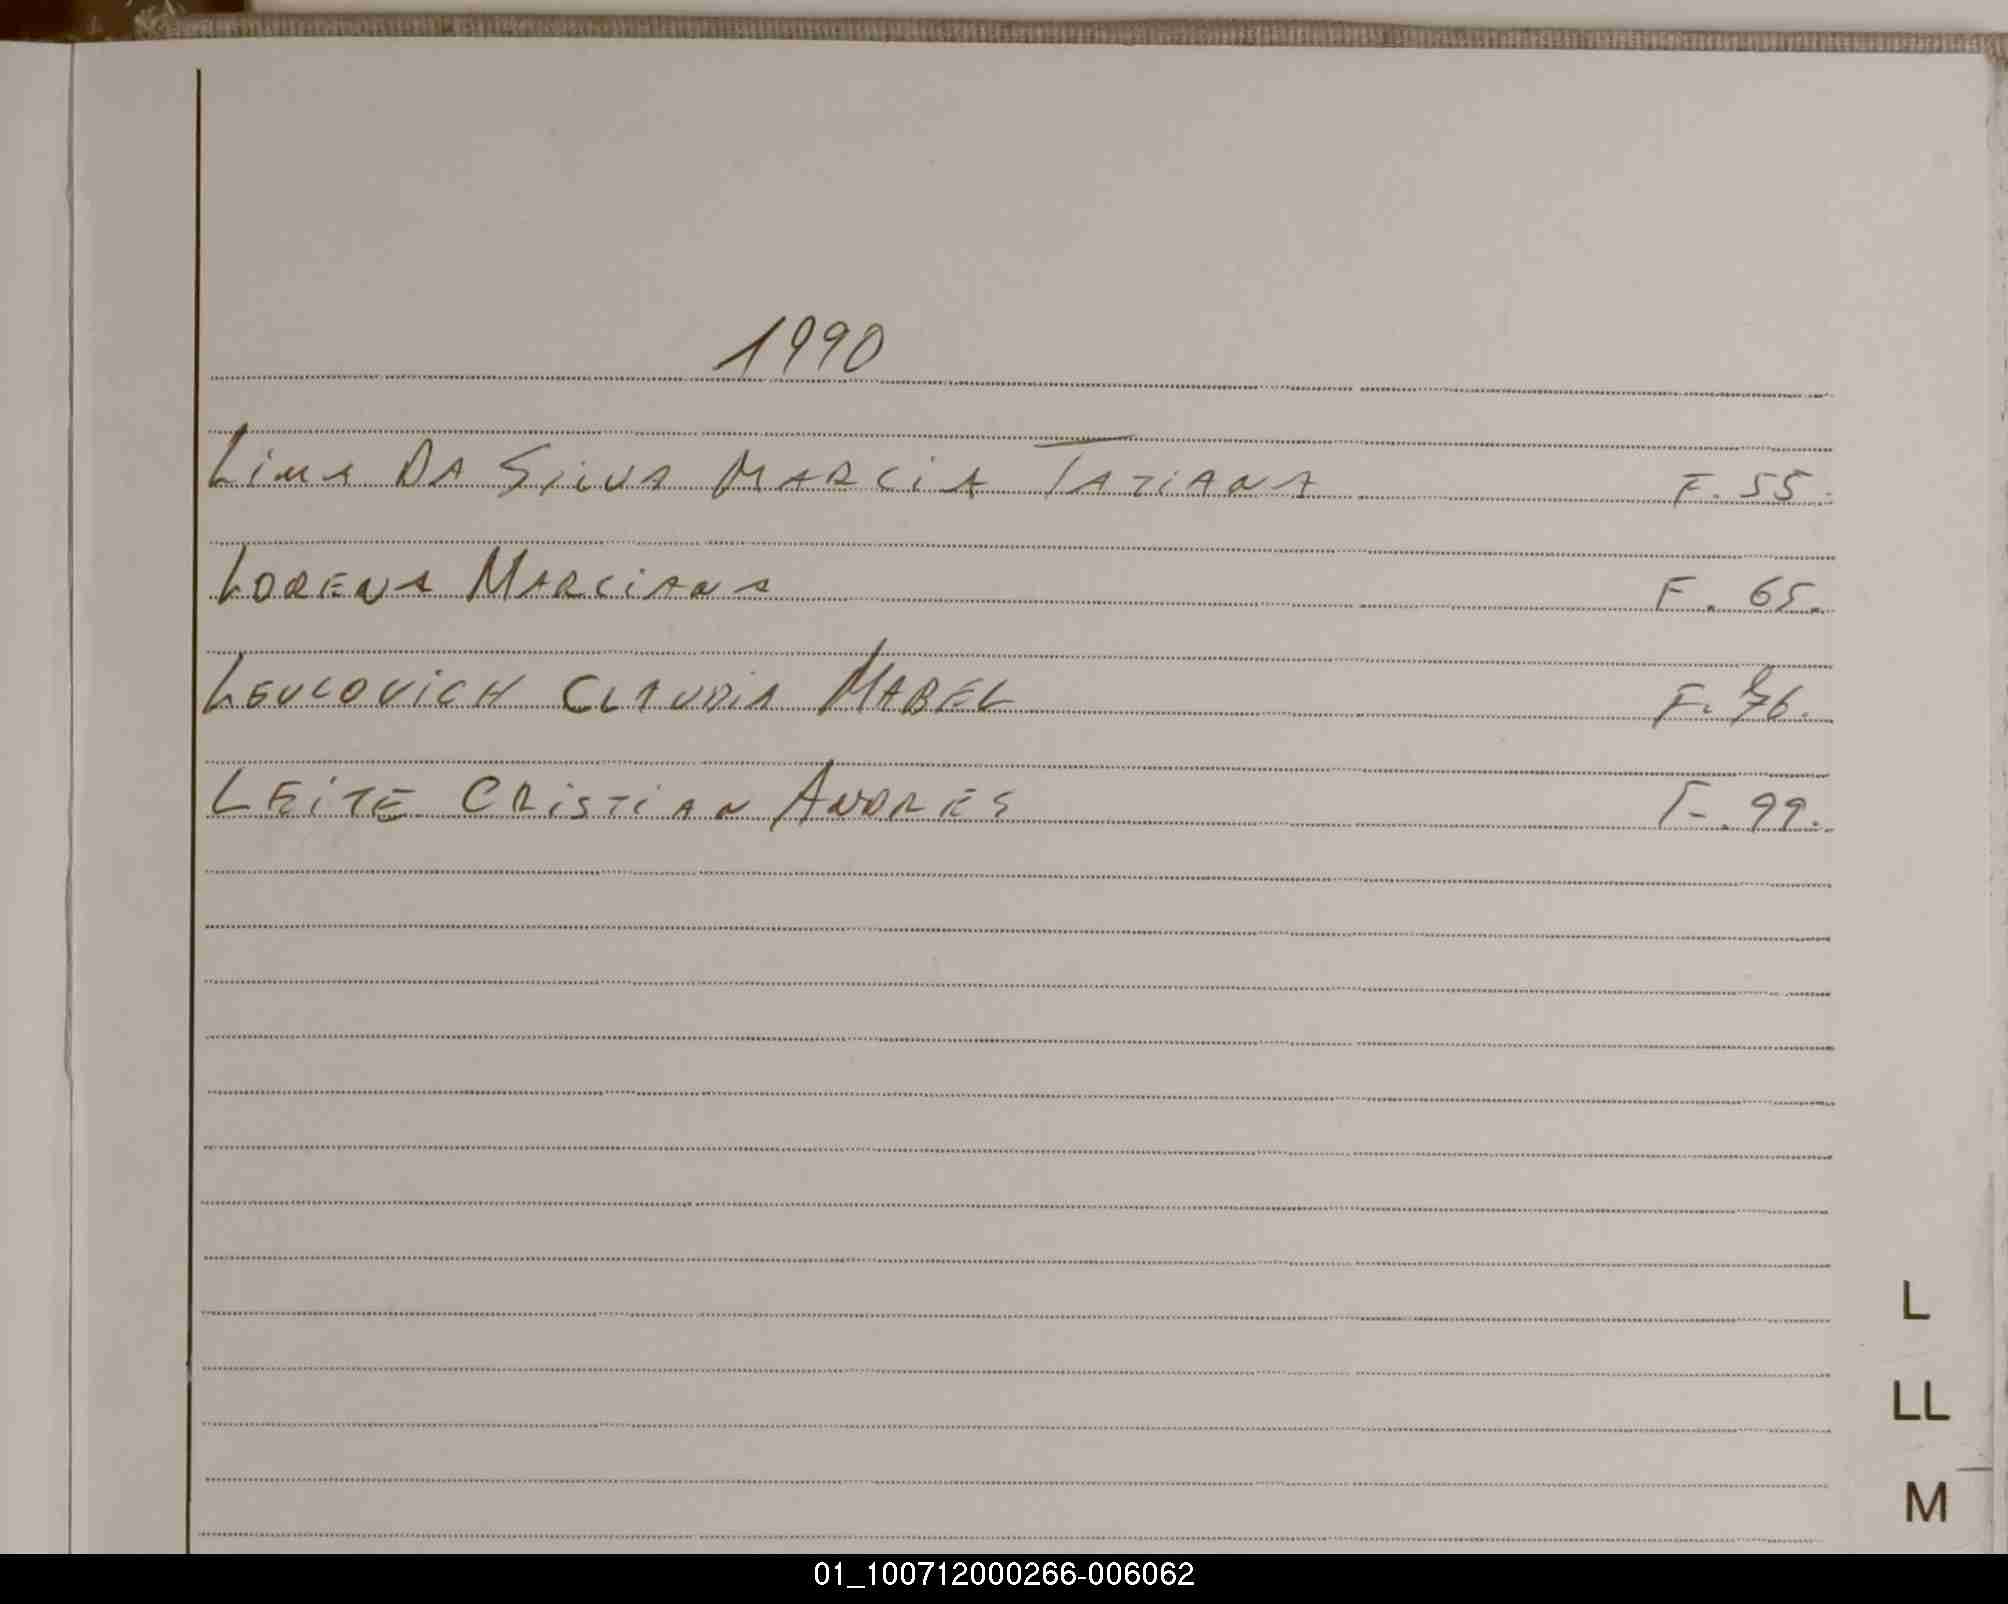 1990
Lima Da Silva Marcia Taziana F. 55.
Lorena Marciana F. 65.
Levcovich Claudia Mabel F. 76.
Leite Cristian Andres F. 99.
L
LL
M
01_100712000266-006062